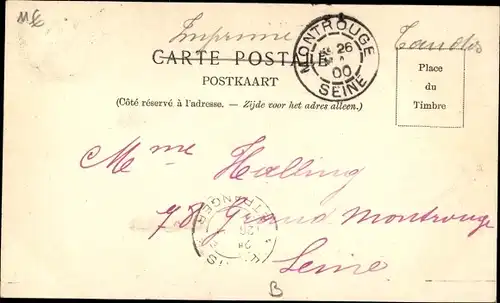 Imprimé
CARTE POSTALE
POSTKAART
(Côté réservé à l'adresse. — Zijde voor het adres alleen.)
MONTROUGE
26
00
SEINE
Place
du
Timbre
Mme Halling
78 Grand Montrouge
Seine
ETRANGER
B